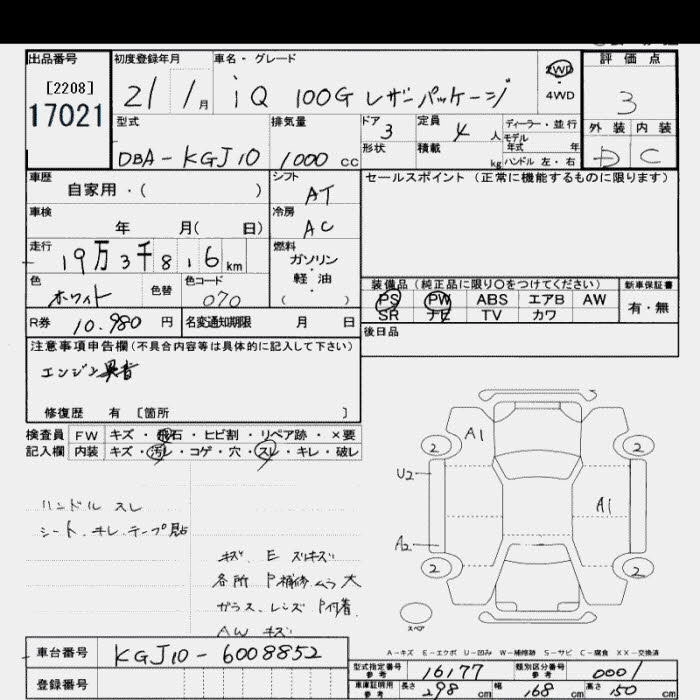 出品番号
[2208]
17021
初度登録年月
21 / 1月
車名・グレード
iQ 100G レザーパッケージ
2WD
・
4WD
評価点
3
型式
DBA-KGJ10
排気量
1000 cc
ドア
3
定員
4 人
ディーラー・並行
モデル
年式 年
形状
積載
kg
ハンドル 左・右
外装 内装
D C
車歴
自家用・( )
シフト
AT
セールスポイント (正常に機能するものに限ります)
車検
年 月( 日)
冷房
AC
走行
19万3千816 km
燃料
ガソリン
・
軽油
( )
色
ホワイト
色替
色コード
070
装備品 (純正品に限り○をつけてください)
新車保証書
PS PW ABS エアB AW
有・無
SR ナビ TV カワ
R券 10.980 円
名変通知期限 月 日
後日品
注意事項申告欄 (不具合内容等は具体的に記入して下さい)
エンジン異音
修復歴 有 [箇所 ]
検査員 FW キズ・飛石・ヒビ割・リペア跡・×要
記入欄 内装 キズ・汚レ・コゲ・穴・スレ・キレ・破レ
A1
2
2
U2
A1
A2
2
2
スペア
ハンドル スレ
シート、キレ、テープ貼
キズ、E ズキズ
各所 P補修ムラ大
ガラス、レンズ P付着
AW キズ
A-キズ E-エクボ U-凹み W-補修跡 S-サビ C-腐食 XX-交換済
車台番号
KGJ10-6008852
型式指定番号
参考
16177
類別区分番号
参考
0001
登録番号
車庫証明用
参考
長さ 298 cm 幅 168 cm 高さ 150 cm